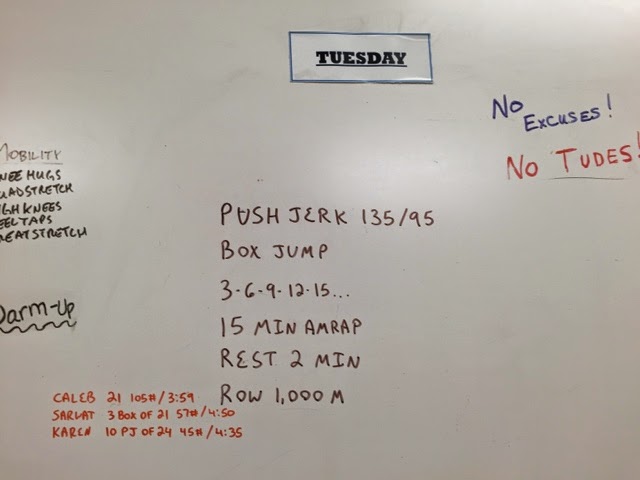 TUESDAY
No
Excuses!
No Tudes!
MOBILITY
NEE HUGS
UADSTRETCH
IGH KNEES
EEL TAPS
REATSTRETCH
Warm-Up
PUSH JERK 135/95
BOX JUMP
3-6-9-12-15...
15 MIN AMRAP
REST 2 MIN
ROW 1,000 M
CALEB 21 105#/3:59
SARLAT 3 BOX OF 21 57#/4:50
KAREN 10 PJ OF 24 45#/4:35